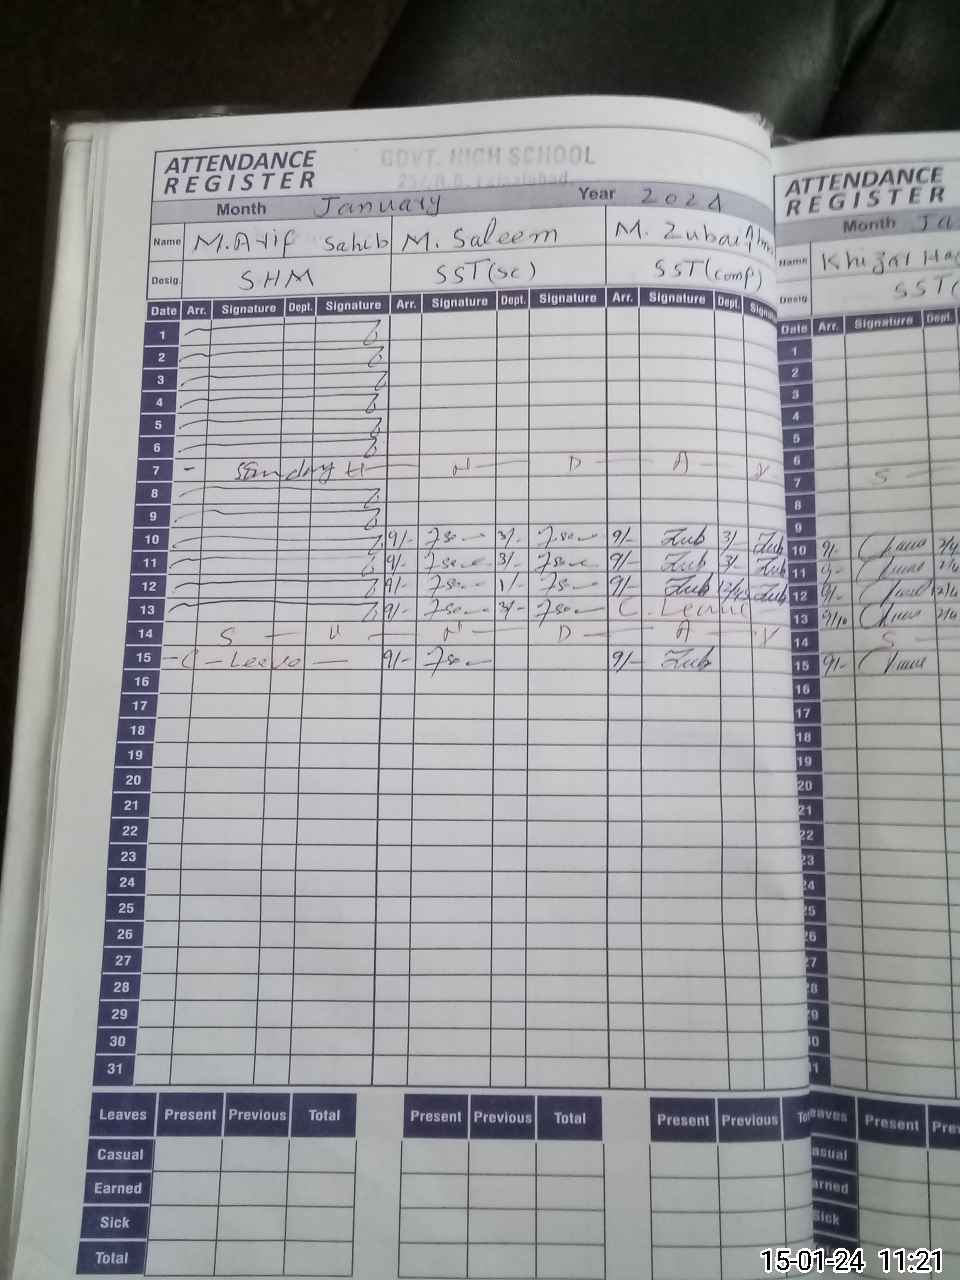 ATTENDANCE REGISTER GOVT. HIGH SCHOOL
Faisalabad
Month January Year 2024
Name M. Arif Sahib M. Saleem M.
Desig. SHM SST(sc) SST(comp)
Date Arr. Signature Dept. Signature Arr. Signature Dept. Signature Arr. Signature Dept.
1
2
3
4
5
6
7 - Sunday N D A Y
8
9
10 9/- 3/- 9/- Zub 3/- Zub
11 9/- 3/- 9/- Zub 3/- Zub
12 9/- 1/- 9/- Zub Zub
13 9/- 3/- C. Leave
14 S U N D A Y
15 - C - Leave - 9/- 9/- Zub
16
17
18
19
20
21
22
23
24
25
26
27
28
29
30
31
Leaves Present Previous Total Present Previous Total Present Previous
Casual
Earned
Sick
Total
ATTENDANCE REGISTER
Month Ja
Name Khizar
Desig. SST(
Date Arr. Signature Dept.
1
2
3
4
5
6
7 S
8
9
10 9/-
11 9/-
12 9/-
13 9/10
14 S
15 9/-
16
17
18
19
20
21
22
23
24
25
26
27
28
29
30
31
Leaves Present Pre
Casual
Earned
Sick
15-01-24 11:21